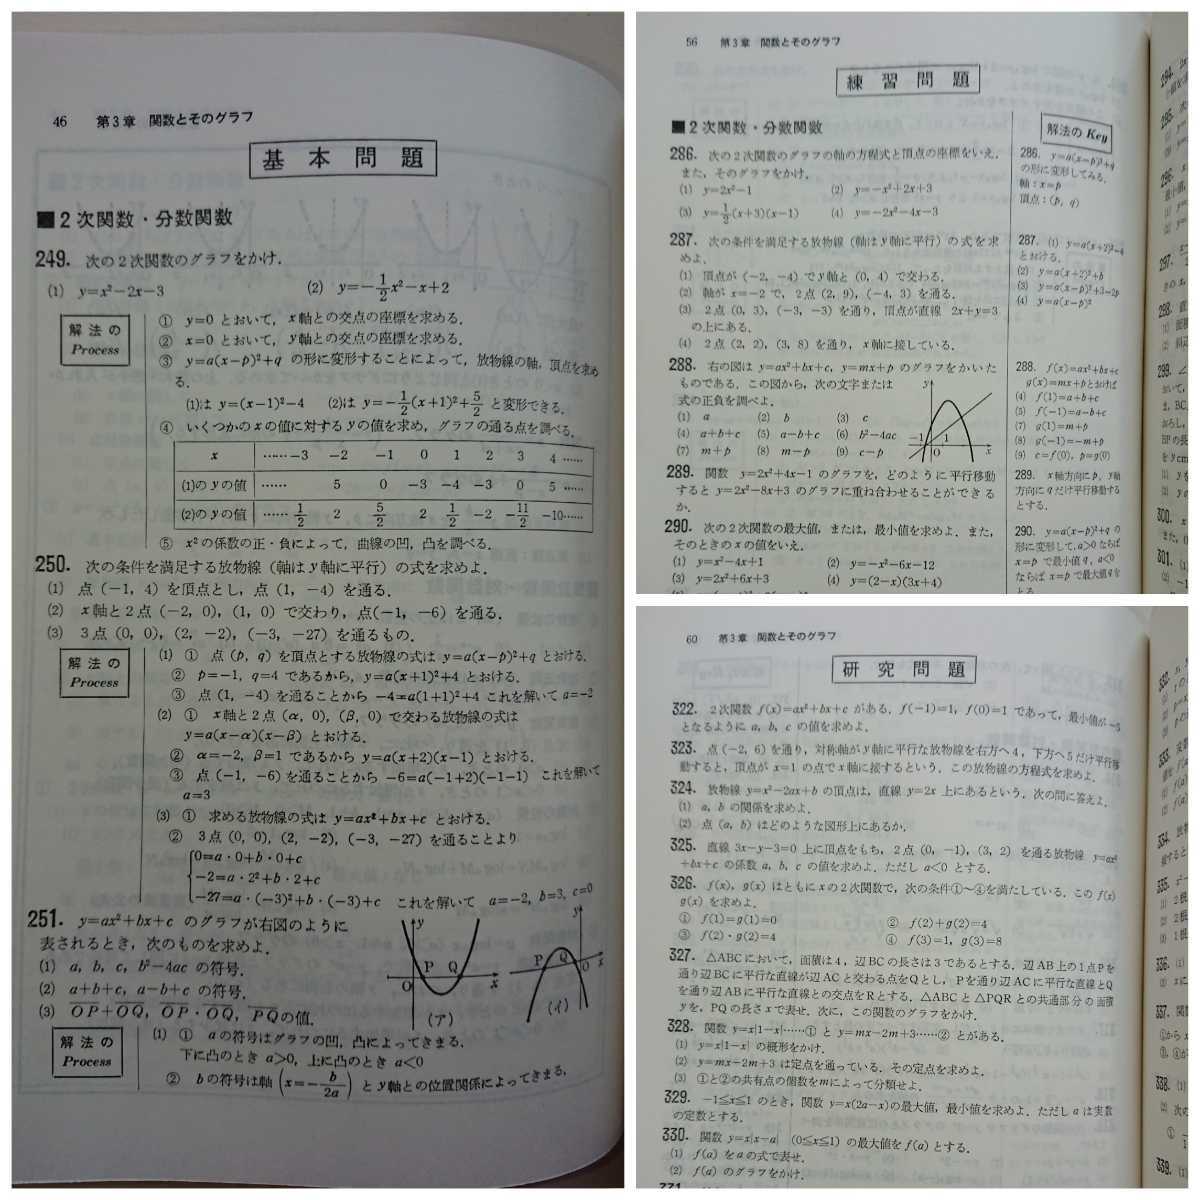 46 第3章 関数とそのグラフ
基本問題
■2次関数・分数関数
249. 次の2次関数のグラフをかけ.
(1) y=x²−2x−3 (2) y=−1/2x²−x+2
解法の Process
① y=0 とおいて, x軸との交点の座標を求める.
② x=0 とおいて, y軸との交点の座標を求める.
③ y=a(x−p)²+q の形に変形することによって, 放物線の軸, 頂点を求め
る.
(1)は y=(x−1)²−4 (2)は y=−1/2(x+1)²+5/2 と変形できる.
④ いくつかの x の値に対する y の値を求め, グラフの通る点を調べる.
x ……−3 −2 −1 0 1 2 3 4 ……
(1)の y の値 …… 5 0 −3 −4 −3 0 5 ……
(2)の y の値 ……1/2 2 5/2 2 1/2 −2 −11/2 −10……
⑤ x² の係数の正・負によって, 曲線の凹, 凸を調べる.
250. 次の条件を満足する放物線 (軸は y 軸に平行) の式を求めよ.
(1) 点 (−1, 4) を頂点とし, 点 (1, −4) を通る.
(2) x 軸と2点 (−2, 0), (1, 0) で交わり, 点(−1, −6) を通る.
(3) 3点 (0, 0), (2, −2), (−3, −27) を通るもの.
解法の Process
(1) ① 点 (p, q) を頂点とする放物線の式は y=a(x−p)²+q とおける.
② p=−1, q=4 であるから, y=a(x+1)²+4 とおける.
③ 点 (1, −4) を通ることから −4=a(1+1)²+4 これを解いて a=−2
(2) ① x軸と2点 (α, 0), (β, 0) で交わる放物線の式は
y=a(x−α)(x−β) とおける.
② α=−2, β=1 であるから y=a(x+2)(x−1) とおける.
③ 点 (−1, −6) を通ることから −6=a(−1+2)(−1−1) これを解いて
a=3
(3) ① 求める放物線の式は y=ax²+bx+c とおける.
② 3点 (0, 0), (2, −2), (−3, −27) を通ることより
0=a・0+b・0+c
−2=a・2²+b・2+c
−27=a・(−3)²+b・(−3)+c これを解いて a=−2, b=3, c=0
251. y=ax²+bx+c のグラフが右図のように
表されるとき, 次のものを求めよ.
(1) a, b, c, b²−4ac の符号.
(2) a+b+c, a−b+c の符号.
(3) OP+OQ, OP・OQ, PQの値.
y P Q O x (ア)
y P Q O x (イ)
解法の Process
(1) ① a の符号はグラフの凹, 凸によってきまる.
下に凸のとき a>0, 上に凸のとき a<0
② b の符号は軸 (x=−b/2a) と y 軸との位置関係によってきまる.
56 第3章 関数とそのグラフ
練習問題
■2次関数・分数関数
解法の Key
286. 次の2次関数のグラフの軸の方程式と頂点の座標をいえ.
また, そのグラフをかけ.
(1) y=2x²−1 (2) y=−x²+2x+3
(3) y=1/2(x+3)(x−1) (4) y=−2x²−4x−3
286. y=a(x−p)²+q
の形に変形してみる.
軸：x=p
頂点：(p, q)
287. 次の条件を満足する放物線 (軸は y 軸に平行) の式を求
めよ.
(1) 頂点が (−2, −4) で y 軸と (0, 4) で交わる.
(2) 軸が x=−2 で, 2点 (2, 9), (−4, 3) を通る.
(3) 2点 (0, 3), (−3, −3) を通り, 頂点が直線 2x+y=3
の上にある.
(4) 2点 (2, 2), (3, 8) を通り, x 軸に接している.
287. (1) y=a(x+2)²−4
とおける.
(2) y=a(x+2)²+b
(3) y=a(x−p)²+3−2p
(4) y=a(x−p)²
288. 右の図は y=ax²+bx+c, y=mx+p のグラフをかいた
ものである. この図から, 次の文字または
式の正負を調べよ.
(1) a (2) b (3) c
(4) a+b+c (5) a−b+c (6) b²−4ac
(7) m+p (8) m−p (9) c−p
y −1 O 1 x
288. f(x)=ax²+bx+c
g(x)=mx+p とおけば
(4) f(1)=a+b+c
(5) f(−1)=a−b+c
(7) g(1)=m+p
(8) g(−1)=−m+p
(9) c=f(0), p=g(0)
289. 関数 y=2x²+4x−1 のグラフを, どのように平行移動
すると y=2x²−8x+3 のグラフに重ね合わせることができる
か.
289. x軸方向に p, y軸
方向に q だけ平行移動する
とする.
290. 次の2次関数の最大値, または, 最小値を求めよ. また,
そのときの x の値をいえ.
(1) y=x²−4x+1 (2) y=−x²−6x−12
(3) y=2x²+6x+3 (4) y=(2−x)(3x+4)
290. y=a(x−p)²+q の
形に変形して, a>0 ならば
x=p で最小値 q, a<0
ならば x=p で最大値 q を
とる.
60 第3章 関数とそのグラフ
研究問題
322. 2次関数 f(x)=ax²+bx+c がある. f(−1)=1, f(0)=1 であって, 最小値が −5
となるように a, b, c の値を求めよ.
323. 点 (−2, 6) を通り, 対称軸が y 軸に平行な放物線を右方へ4, 下方へ5だけ平行移
動すると, 頂点が x=1 の点で x 軸に接するという. この放物線の方程式を求めよ.
324. 放物線 y=x²−2ax+b の頂点は, 直線 y=2x 上にあるという. 次の問に答えよ.
(1) a, b の関係を求めよ.
(2) 点 (a, b) はどのような図形上にあるか.
325. 直線 3x−y−3=0 上に頂点をもち, 2点 (0, −1), (3, 2) を通る放物線 y=ax²
+bx+c の係数 a, b, c の値を求めよ. ただし a<0 とする.
326. f(x), g(x) はともに x の2次関数で, 次の条件①〜④を満たしている. この f(x)
g(x) を求めよ.
① f(1)=g(1)=0 ② f(2)+g(2)=4
③ f(2)・g(2)=4 ④ f(3)=1, g(3)=8
327. △ABCにおいて, 面積は4, 辺BCの長さは3であるとする. 辺AB上の1点Pを
通り辺BCに平行な直線が辺ACと交わる点をQとし, Pを通り辺ACに平行な直線とQ
を通り辺ABに平行な直線との交点をRとする. △ABCと△PQRとの共通部分の面積
y を, PQの長さ x で表せ. 次に, この関数のグラフをかけ.
328. 関数 y=x|1−x|……① と y=mx−2m+3……② とがある.
(1) y=x|1−x| の概形をかけ.
(2) y=mx−2m+3 は定点を通っている. その定点を求めよ.
(3) ①と②の共有点の個数を m によって分類せよ.
329. −1≦x≦1 のとき, 関数 y=x(2a−x)の最大値, 最小値を求めよ. ただし a は実数
の定数とする.
330. 関数 y=x|x−a| (0≦x≦1) の最大値を f(a) とする.
(1) f(a) を a の式で表せ.
(2) f(a) のグラフをかけ.